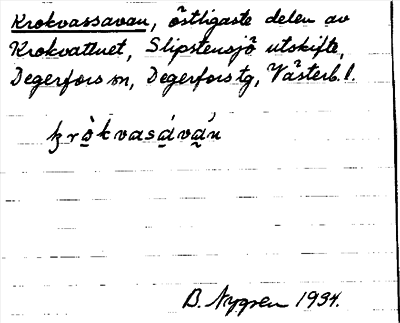 Krokvassavan, östligaste delen av
Krokvattnet, Slipstensjö utskifte,
Degerfors sn, Degerfors tg, Västerb. l.
krò̠kvasá̠vá̠n
B. Nygren 1934.